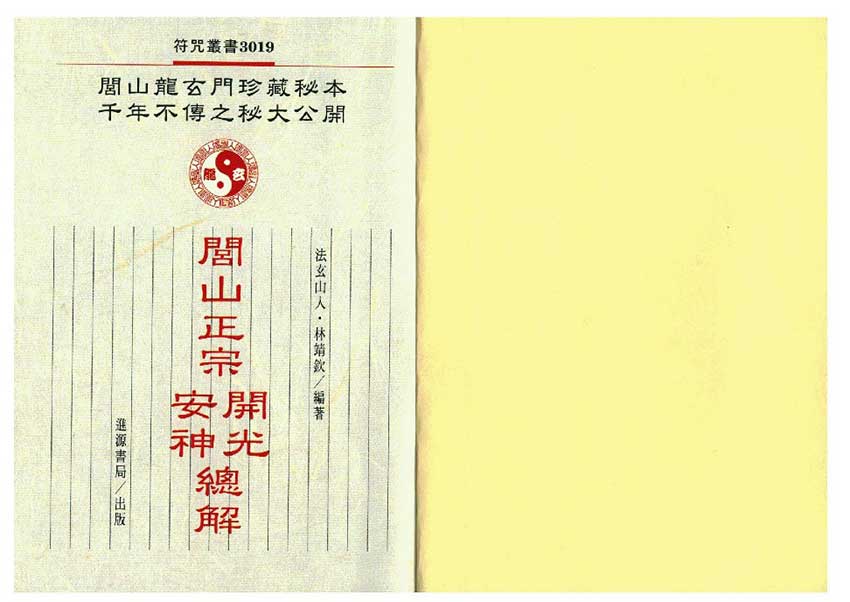 符咒叢書3019
閭山龍玄門珍藏秘本
千年不傳之秘大公開
龍 玄
法玄山人・林靖欽/編著
閭山正宗
開光
安神
總解
進源書局/出版